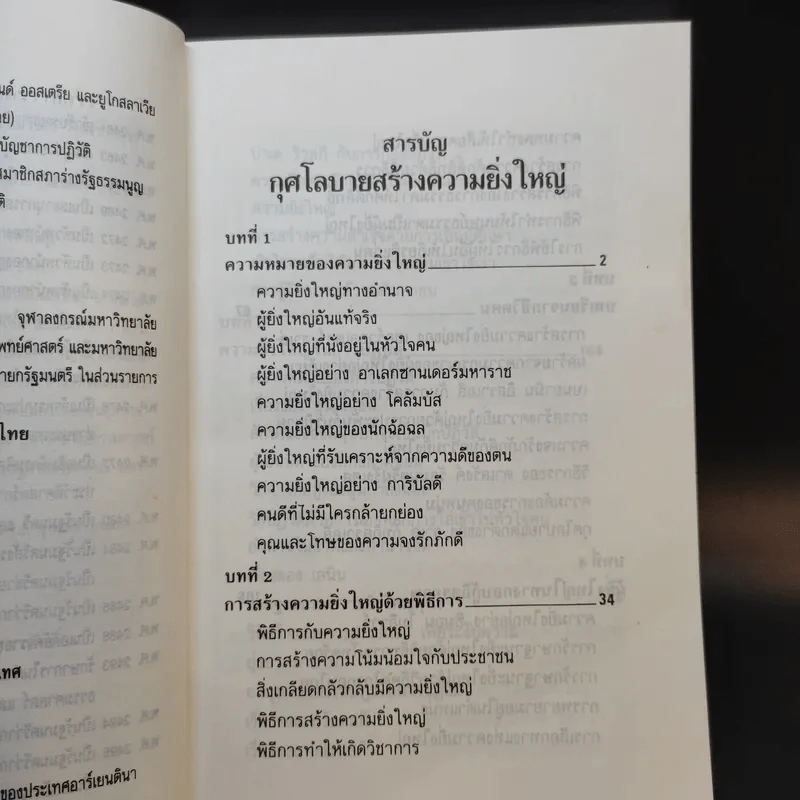 นด์ ออสเตรีย และยูโกสลาเวีย
าย)
บัญชาการปฏิวัติ
สมาชิกสภาร่างรัฐธรรมนูญ
ติ
จุฬาลงกรณ์มหาวิทยาลัย
พทย์ศาสตร์ และมหาวิทยาลัย
ายกรัฐมนตรี ในส่วนรายการ
ไทย
เทศ
ของประเทศอาร์เยนตินา
สารบัญ
กุศโลบายสร้างความยิ่งใหญ่
บทที่ 1
ความหมายของความยิ่งใหญ่ 2
ความยิ่งใหญ่ทางอำนาจ
ผู้ยิ่งใหญ่อันแท้จริง
ผู้ยิ่งใหญ่ที่นั่งอยู่ในหัวใจคน
ผู้ยิ่งใหญ่อย่าง อาเลกซานเดอร์มหาราช
ความยิ่งใหญ่อย่าง โคลัมบัส
ความยิ่งใหญ่ของนักฉ้อฉล
ผู้ยิ่งใหญ่ที่รับเคราะห์จากความดีของตน
ความยิ่งใหญ่อย่าง การิบัลดี
คนดีที่ไม่มีใครกล้ายกย่อง
คุณและโทษของความจงรักภักดี
บทที่ 2
การสร้างความยิ่งใหญ่ด้วยพิธีการ 34
พิธีการกับความยิ่งใหญ่
การสร้างความโน้มน้อมใจกับประชาชน
สิ่งเกลียดกลัวกลับมีความยิ่งใหญ่
พิธีการสร้างความยิ่งใหญ่
พิธีการทำให้เกิดวิชาการ